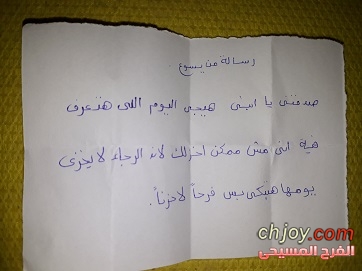 رسالة من يسوع
صدقنى يا ابنى هيجى اليوم اللى هتعرف
فية انى مش ممكن اخزلك لان الرجاء لا يخزى
يومها هتبكى بس فرحاً لا حزناً.
chjoy.com
الفرح المسيحى